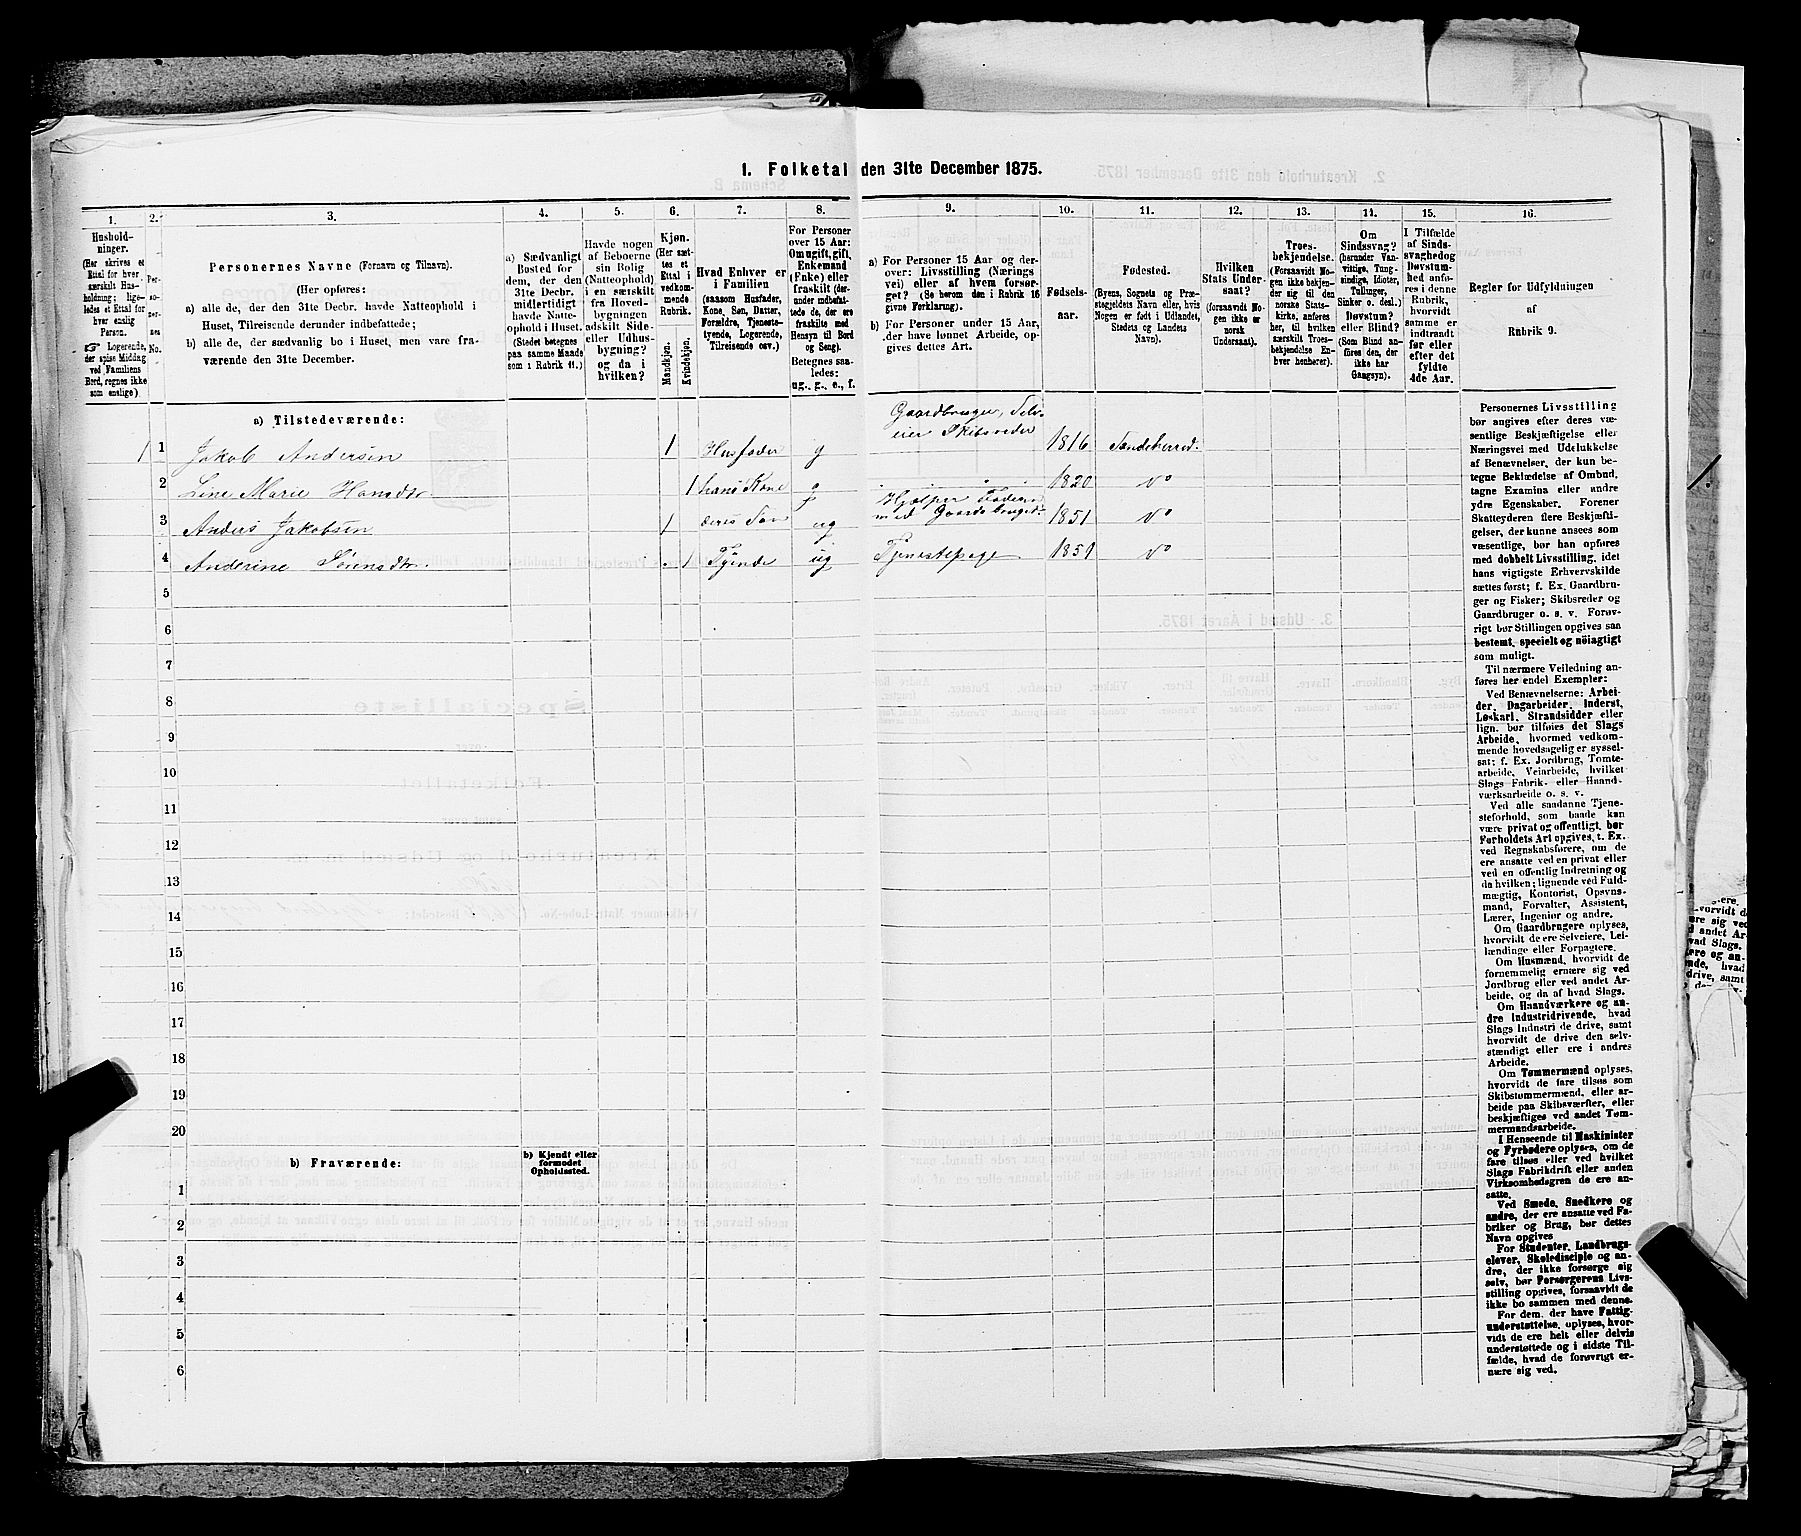 1. Folketal den 31te December 1875.
1.
2.
3.
4.
5.
6.
7.
8.
9.
10.
11.
12.
13.
14.
15.
16.
Hushold-
ninger.
(Her skrives et
Ettal for hver
særskilt Hus-
holdning; lige-
ledes et Ettal for
hver enslig
Person.
☞ Logerende,
der spise Middag
ved Familiens
Bord, regnes ikke
som enslige).
Per-
so-
ner-
nes
No.
Personernes Navne (Fornavn og Tilnavn).
(Her opføres:
a) alle de, der den 31te Decbr. havde Natteophold i
Huset, Tilreisende derunder indbefattede;
b) alle de, der sædvanlig bo i Huset, men vare fra-
værende den 31te December.
a) Sædvanligt
Bosted for
dem, der den
31te Decbr.
midlertidigt
havde Natte-
ophold i Huset.
(Stedet betegnes
paa samme Maade
som i Rubrik 11.)
Havde nogen
af Beboerne
sin Bolig
(Natteophold)
i en særskilt
fra Hoved-
bygningen
adskilt Side-
eller Udhus-
bygning?
og da i
hvilken?
Kjøn.
(Her sæt-
tes et
Ettal i
vedkom-
mende
Rubrik.
Mandkjøn.
Kvindekjøn.
Hvad Enhver er
i Familien
(saasom Husfader,
Kone, Søn, Datter,
Forældre, Tjeneste-
tyende, Logerende,
Tilreisende osv.)
For Personer
over 15 Aar:
Om ugift, gift,
Enkemand
(Enke) eller
fraskilt (der-
under indbefat-
tede de, der ere
fraskilte med
Hensyn til Bord
og Seng).
Betegnes saa-
ledes:
ug., g., e., f.
a) For Personer 15 Aar og der-
over: Livsstilling (Nærings
vei) eller af hvem forsør-
get? (Se herom den i Rubrik 16
givne Forklaring).
b) For Personer under 15 Aar,
der have lønnet Arbeide, op-
gives dettes Art.
Fødsels-
aar.
Fødested.
(Byens, Sognets og Præ-
stegjeldets Navn eller, hvis
Nogen er født i Udlandet,
Stedets og Landets
Navn).
Hvilken
Stats Under-
saat?
(forsaavidt No-
gen ikke er
norsk
Undersaat).
Troes-
bekjendelse.
(Forsaavidt No-
gen ikke bekjen-
der sig til den
norske Stats-
kirke, anføres
her, til hvilken
særskilt Troes-
bekjendelse En-
hver henhører).
Om
Sindssvag?
(herunder Van-
vittige, Tung-
sindige, Idioter,
Tullinger,
Sinker o. desl.)
Døvstum?
eller Blind?
(Som Blind an-
føres den, der
ikke har
Gangsyn).
I Tilfælde
af Sinds-
svaghed og
Døvstum-
hed anfø-
res i denne
Rubrik,
hvorvidt
samme er
indtraadt
før eller
efter det
fyldte
4de Aar.
Regler for Udfyldningen
af
Rubrik 9.
a) Tilstedeværende:
1 1 Jakob Andersen 1 Husfader g Gaardbruger, Selv-
eier Skibsreder 1816 Sandeherred.
2 Line Marie Hansdtr 1 hans Kone g 1820 Do
3 Anders Jakobsen 1 deres Søn ug Hjælper Faderen
med Gaardsbruget. 1851 Do
4 Anderine Sørensdtr. 1 Tyende ug Tjenestepige 1851 Do
5
6
7
8
9
10
11
12
13
14
15
16
17
18
19
20
b) Fraværende:
b) Kjendt eller
formodet
Opholdssted.
1
2
3
4
5
6
Personernes Livsstilling
bør angives efter deres væ-
sentlige Beskjæftigelse eller
Næringsvei med Udelukkelse
af Benævnelser, der kun be-
tegne Beklædelse af Ombud,
tagne Examina eller andre
ydre Egenskaber. Forener
Skatteyderen flere Beskjæfti-
gelser, der kunne ansees som
væsentlige, bør han opføres
med dobbelt Livsstilling, idet
hans vigtigste Erhvervskilde
sættes først; f. Ex. Gaardbru-
ger og Fisker; Skibsreder og
Gaardbruger o. s. v. Forøv-
rigt bør Stillingen opgives saa
bestemt, specielt og nöiagtigt
som muligt.
Til nærmere Veiledning an-
føres her endel Exempler:
Ved Benævnelserne: Arbei-
der, Dagarbeider, Inderst,
Løskarl, Strandsidder eller
lign. bør tilføies det Slags
Arbeide, hvormed vedkom-
mende hovedsagelig er syssel-
sat; f. Ex. Jordbrug, Tomte-
arbeide, Veiarbeide, hvilket
Slags Fabrik- eller Haand-
værksarbeide o. s. v.
Ved alle saadanne Tjene-
steforhold, som baade kan
være privat og offentligt, bør
Forholdets Art opgives, t. Ex.
ved Regnskabsførere, om de
ere ansatte ved en privat eller
ved en offentlig Indretning og
da hvilken; lignende ved Fuld-
mægtig, Kontorist, Opsyns-
mand, Forvalter, Assistent,
Lærer, Ingeniør og andre.
Om Gaardbrugere oplyses,
hvorvidt de ere Selveiere, Lei-
lændinge eller Forpagtere.
Om Husmænd, hvorvidt de
fornemmelig ernære sig ved
Jordbrug eller ved andet Ar-
beide, og da af hvad Slags.
Om Haandværkere og an-
dre Industridrivende, hvad
Slags Industri de drive, samt
hvorvidt de drive den selv-
stændigt eller ere i andres
Arbeide.
Om Tømmermænd oplyses,
hvorvidt de fare tilsøs som
Skibstømmermænd, eller ar-
beide paa Skibsværfter, eller
beskjæftiges ved andet Tøm-
mermandsarbeide.
I Henseende til Maskinister
og Fyrbødere oplyses, om de
fare tilsøs eller ved hvilket
Slags Fabrikdrift eller anden
Virksomhedsgren de ere an-
satte.
Ved Smede, Snedkere og
andre, der ere ansatte ved Fa-
briker og Brug, bør dettes
Navn opgives
For Studenter, Landbrugs-
elever, Skoledisciple og an-
dre, der ikke forsørge sig
selv, bør Forsørgerens Livs-
stilling opgives, forsaavidt de
ikke bo sammen med denne.
For dem, der have Fattig-
understøttelse, oplyses, hvor-
vidt de ere helt eller delvis
understøttede og i sidste Til-
fælde, hvad de forøvrigt er-
nære sig ved.